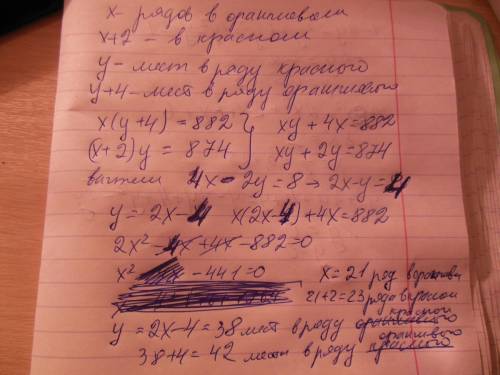 x - рядов в оранжевом
x+2 - в красном
y - мест в ряду красного
y+4 - мест в ряду оранжевого
x(y+4) = 882 } xy + 4x = 882
(x+2)y = 874 xy + 2y = 874
вычтем 4x - 2y = 8 → 2x - y = 4
y = 2x - 4 x(2x-4) + 4x = 882
2x² - 4x + 4x - 882 = 0
x² - 441 = 0 x = 21 ряд в оранжев
21+2=23 ряда в красном
y = 2x - 4 = 38 мест в ряду красном
38+4 = 42 мест в ряду оранжевого